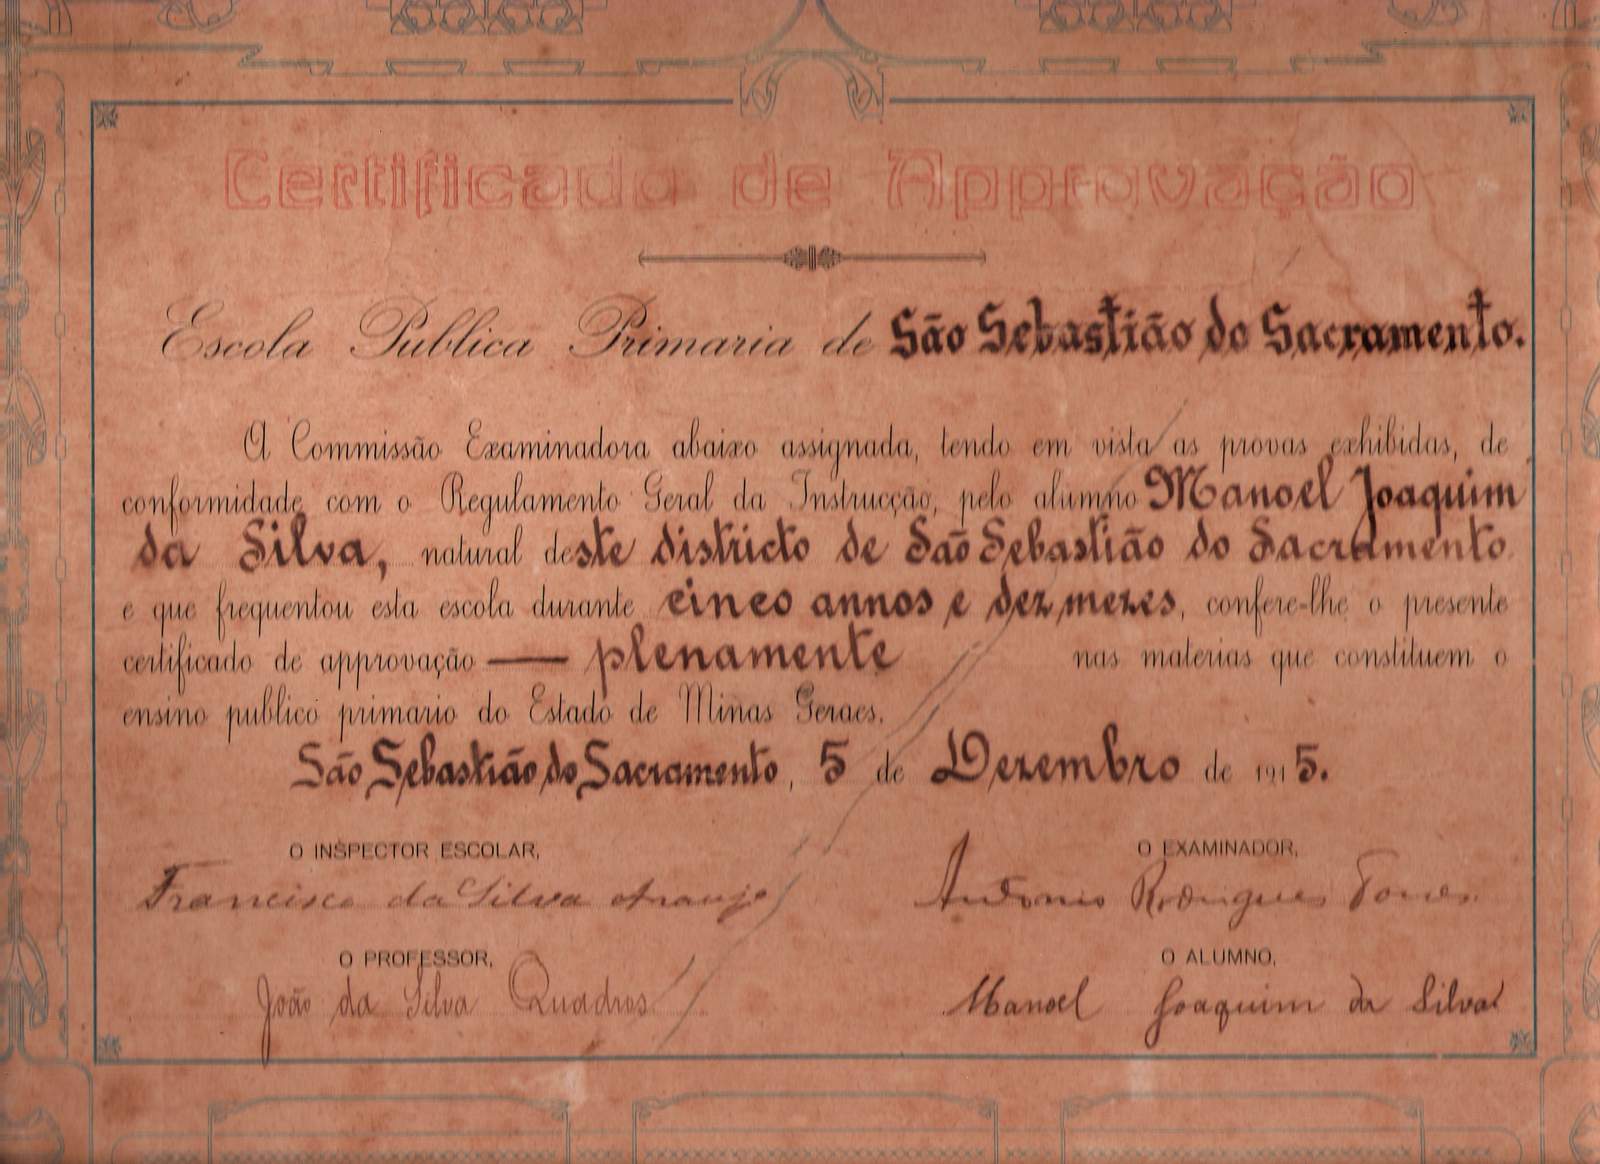 Certificado de Approvação
Escola Publica Primaria de São Sebastião do Sacramento.
A Commissão Examinadora abaixo assignada, tendo em vista as provas exhibidas, de
conformidade com o Regulamento Geral da Instrucção, pelo alumno Manoel Joaquim
da Silva, natural deste districto de São Sebastião do Sacramento
e que frequentou esta escola durante cinco annos e dez mezes, confere-lhe o presente
certificado de approvação — plenamente nas materias que constituem o
ensino publico primario do Estado de Minas Geraes.
São Sebastião do Sacramento, 5 de Dezembro de 1915.
O INSPECTOR ESCOLAR, O EXAMINADOR,
Francisco da Silva Araujo Antonio Rodrigues Torres
O PROFESSOR, O ALUMNO,
João da Silva Quadros Manoel Joaquim da Silva